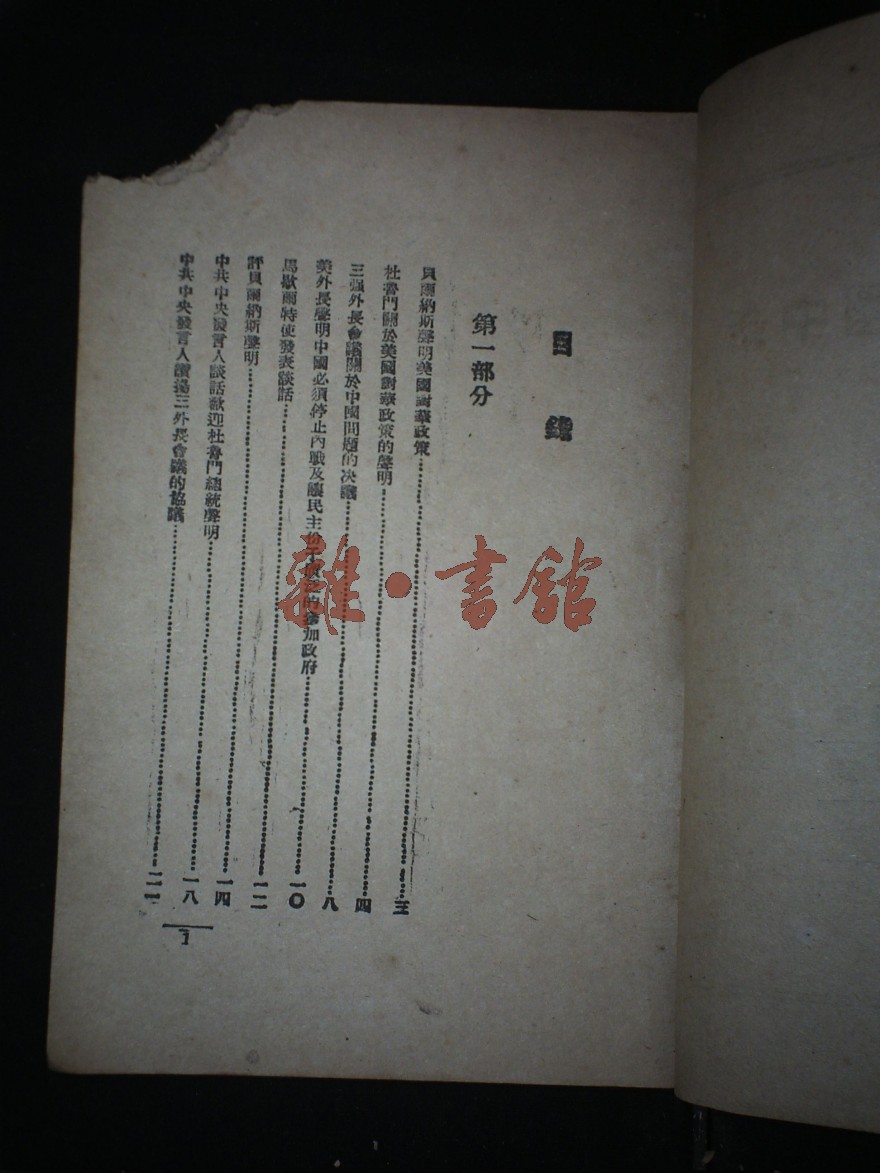 目錄
第一部分
貝爾納斯聲明美國對華政策………三
杜魯門關於美國對華政策的聲明………四
三强外長會議關於中國問題的决議………八
美外長聲明中國必須停止內戰及讓民主份子 的參加政府………一〇
馬歇爾特使發表談話………一二
評貝爾納斯聲明………一四
中共中央發言人談話歡迎杜魯門總統聲明………一八
中共中央發言人讚揚三外長會議的協議………二一
1
雜·書館